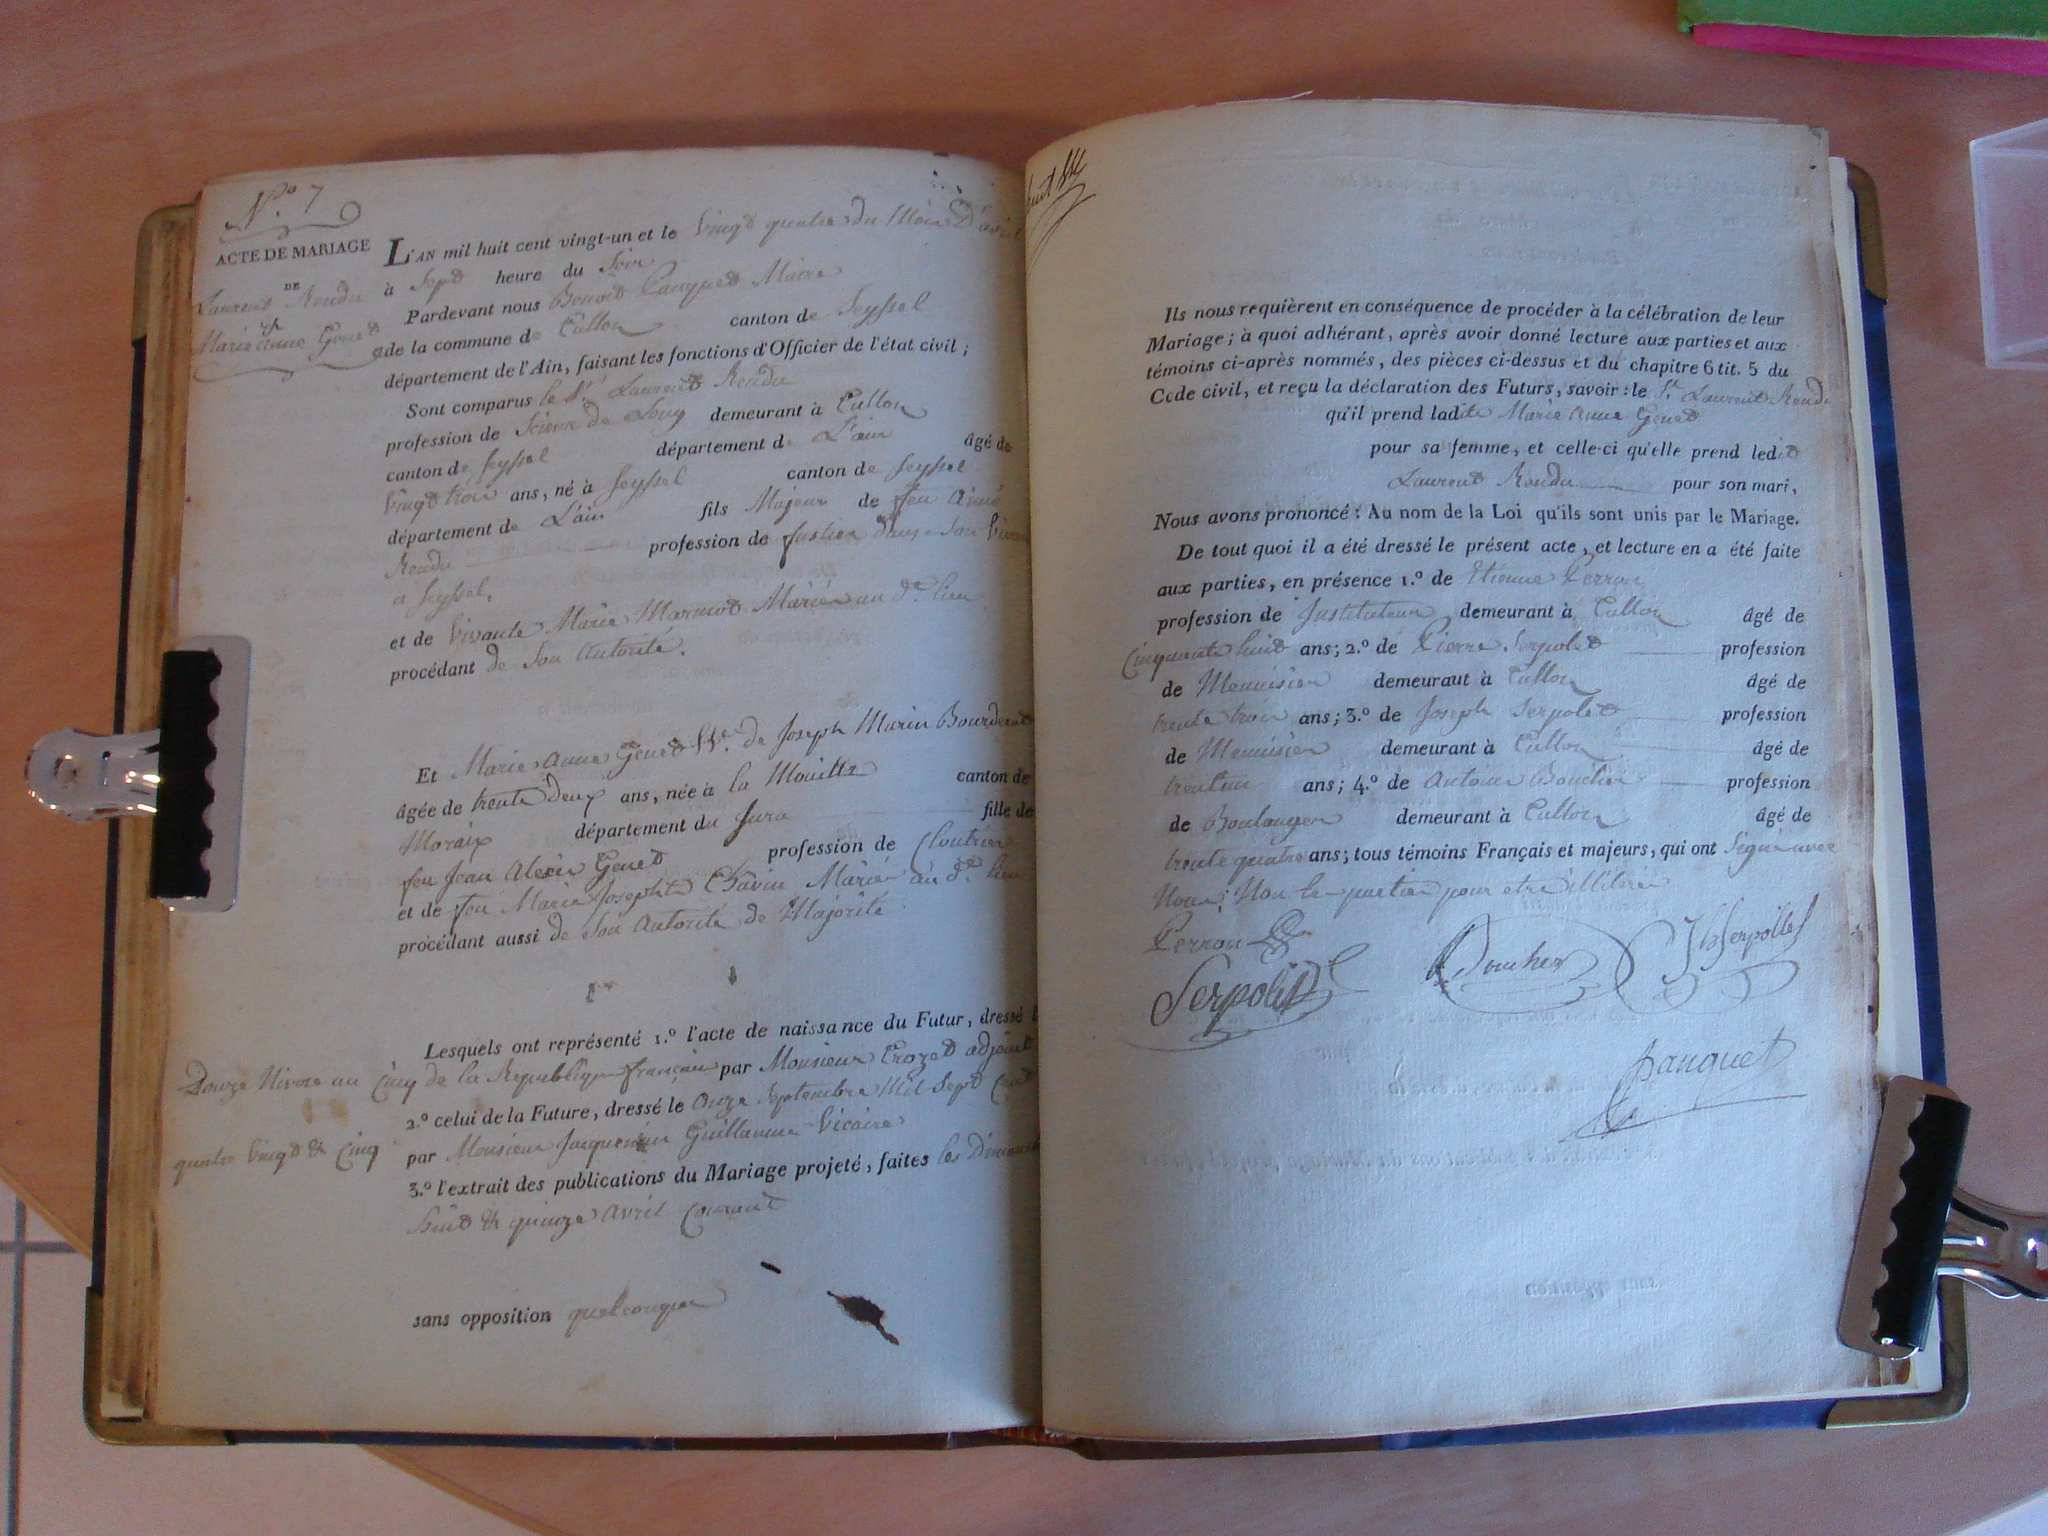 N.º 7
ACTE DE MARIAGE
DE
Laurent Rendu
&
Marie anne Genet
L'AN mil huit cent vingt-un et le vingt quatre du Mois D'avril
à Sept heure du Soir
Pardevant nous Benoit Panquet Maire
de la commune de Culloz canton de Seyssel
département de l'Ain, faisant les fonctions d'Officier de l'état civil ;
Sont comparus le Sr. Laurent Rendu
profession de Scieur de Long demeurant à Culloz
canton de Seyssel département de L'ain âgé de
vingt trois ans, né à Seyssel canton de Seyssel
département de L'ain fils Majeur de feu Aimé
Rendu profession de dans Son vivant
a Seyssel.
et de vivante Marie Marmot Mariés au dt. lieu
procédant de Son Autorité.
Et Marie Anne Genet Ve. de Joseph Marin
âgée de trente deux ans, née à la Mouille canton de
Moraix département du Jura fille de
feu Jean Alexis Genet profession de Cloutier
et de feu Marie Josephte Chavin Mariés au dt. lieu
procédant aussi de Son Autorité de Majorité
Lesquels ont représenté 1.º l'acte de naissance du Futur, dressé l
Douze Nivose an Cinq de la Republique française par Monsieur Crozet adjoint
2.º celui de la Future, dressé le Onze Septembre Mil Sept Cent
quatre vingt & Cinq par Monsieur Guillaume Vicaire
3.º l'extrait des publications du Mariage projeté, faites les Dimanches
huit & quinze Avril Courant
sans opposition quelconque
Ils nous requièrent en conséquence de procéder à la célébration de leur
Mariage ; à quoi adhérant, après avoir donné lecture aux parties et aux
témoins ci-après nommés, des pièces ci-dessus et du chapitre 6 tit. 5 du
Code civil, et reçu la déclaration des Futurs, savoir : le Sr. Laurent Rendu
qu'il prend ladite Marie Anne Genet
pour sa femme, et celle-ci qu'elle prend ledit
Laurent Rendu pour son mari,
Nous avons prononcé : Au nom de la Loi qu'ils sont unis par le Mariage.
De tout quoi il a été dressé le présent acte, et lecture en a été faite
aux parties, en présence 1.º de Etienne Perron
profession de Instituteur demeurant à Culloz âgé de
Cinquante huit ans ; 2.º de Pierre Serpolet profession
de Menuisier demeurant à Culloz âgé de
trente trois ans ; 3.º de Joseph Serpolet profession
de Menuisier demeurant à Culloz âgé de
trentun ans ; 4.º de Antoine Boucher profession
de Boulanger demeurant à Culloz âgé de
trente quatre ans ; tous témoins Français et majeurs, qui ont Signé avec
Nous ; Non les parties pour etre illitérés
Perron
Serpolet Boucher Jh Serpollet
Panquet